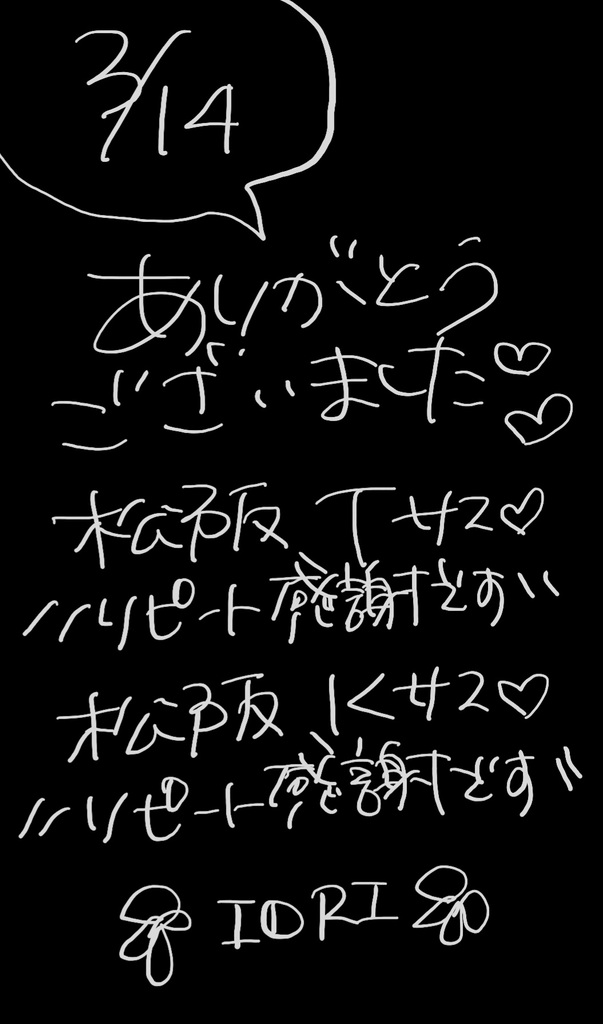 2/14
ありがとう
ございました♡♡
松阪 Tサマ♡
〃リピート感謝です〃
松阪 Kサマ♡
〃リピート感謝です〃
IORI